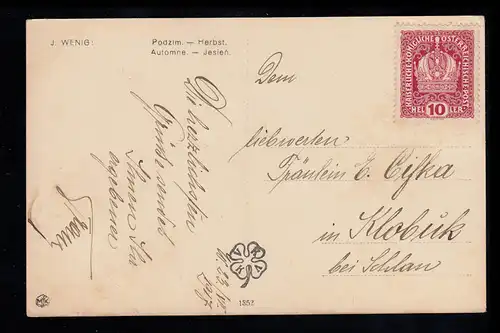 J. WENIG:
Podzim. — Herbst.
Automne. — Jesień.
KAISERLICHE KÖNIGLICHE ÖSTERREICHISCHE POST
HEL 10 LER
Dem
liebwerten
Fräulein E. Cífka
in Klobuk
bei Schlan
Die herzlichsten
Grüße sendet
Ihnen Ihr
ergebener
1352